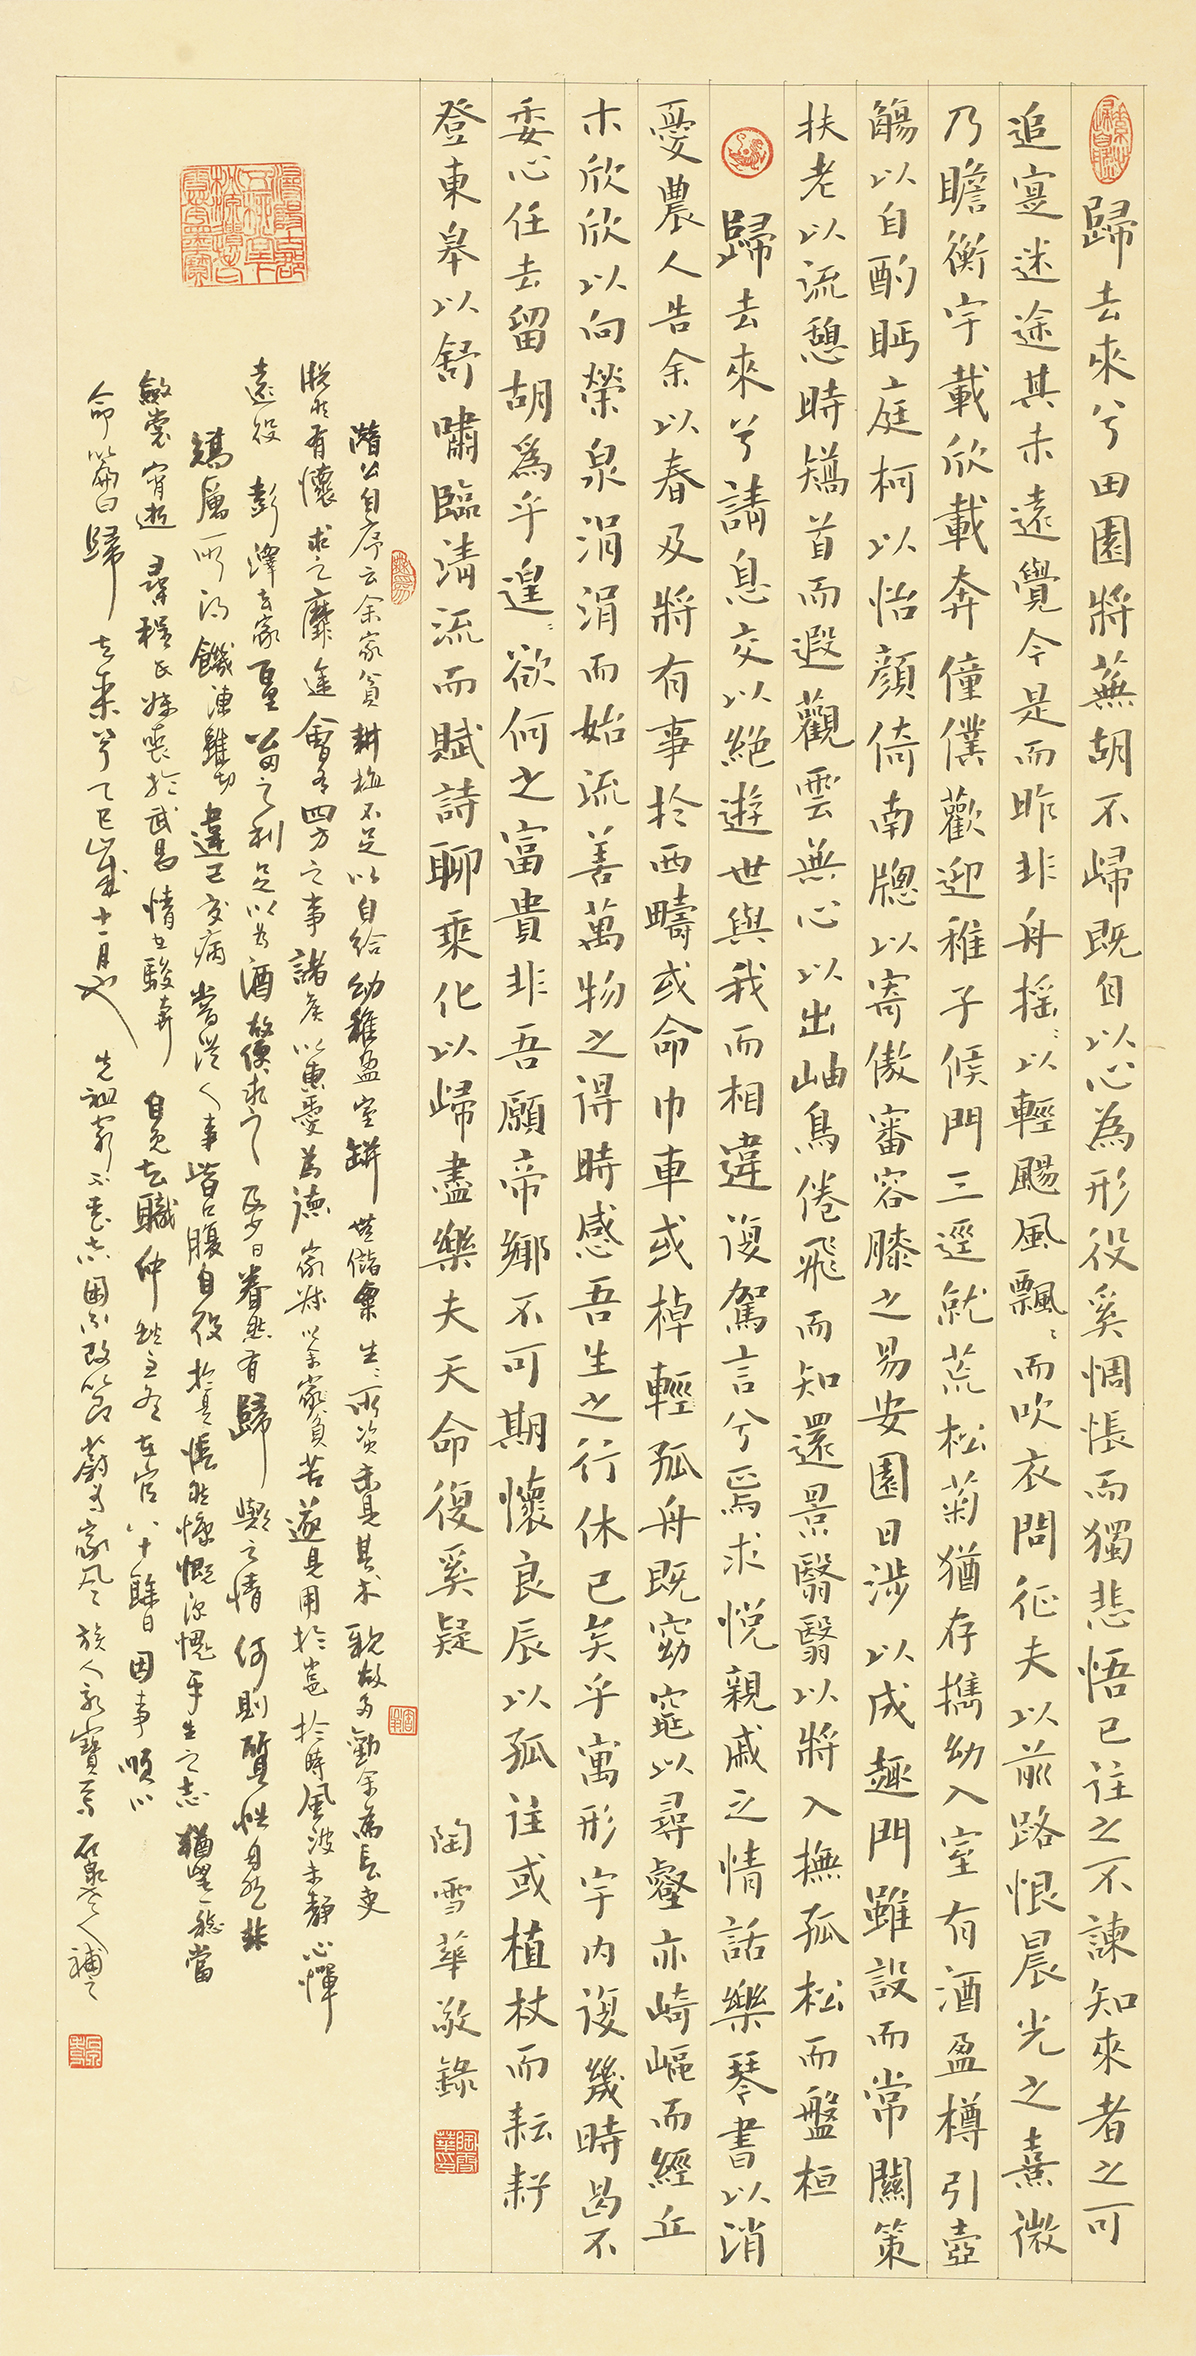 歸去來兮田園將蕪胡不歸既自以心為形役奚惆悵而獨悲悟已往之不諫知來者之可
追寔迷途其未遠覺今是而昨非舟摇ミ以輕颺風飄ミ而吹衣問征夫以前路恨晨光之熹微
乃瞻衡宇載欣載奔僮僕歡迎稚子候門三逕就荒松菊猶存携幼入室有酒盈樽引壺
觴以自酌眄庭柯以怡顏倚南牕以寄傲審容膝之易安園日涉以成趣門雖設而常關策
扶老以流憩時矯首而遐觀雲無心以出岫鳥倦飛而知還景翳翳以將入撫孤松而盤桓
歸去來兮請息交以絕遊世與我而相違復駕言兮焉求悅親戚之情話樂琴書以消
憂農人告余以春及將有事於西疇或命巾車或棹輕孤舟既窈窕以尋壑亦崎嶇而經丘
木欣欣以向榮泉涓涓而始流善萬物之得時感吾生之行休已矣乎寓形宇內復幾時曷不
委心任去留胡為乎遑ミ欲何之富貴非吾願帝鄉不可期懷良辰以孤往或植杖而耘耔
登東皋以舒嘯臨清流而賦詩聊乘化以歸盡樂夫天命復奚疑 陶雪華敬錄
陶雪華印
潛公自序云余家貧耕植不足以自給幼稚盈室缾無儲粟生ミ所資未見其术親故多勸余為長吏
脫然有懷求之靡途會有四方之事諸侯以惠愛為德家叔以余家貧苦遂見用於邑於時風波未靜心憚
遠役彭澤去家百里公田之利足以為酒故便求之及少日眷然有歸歟之情何則質性自然非
矯厲所得饑凍雖切違己交病嘗從人事皆口腹自役於是悵然慷慨深愧平生之志猶望一稔當
斂裳宵逝尋程氏妹喪於武昌情在駿奔自免去職仲秋至冬在官八十餘日因事順心
命篇曰歸去來兮乙巳歲十一月也 先祖窮不困不改節蔚為家風族人寶焉石人補之